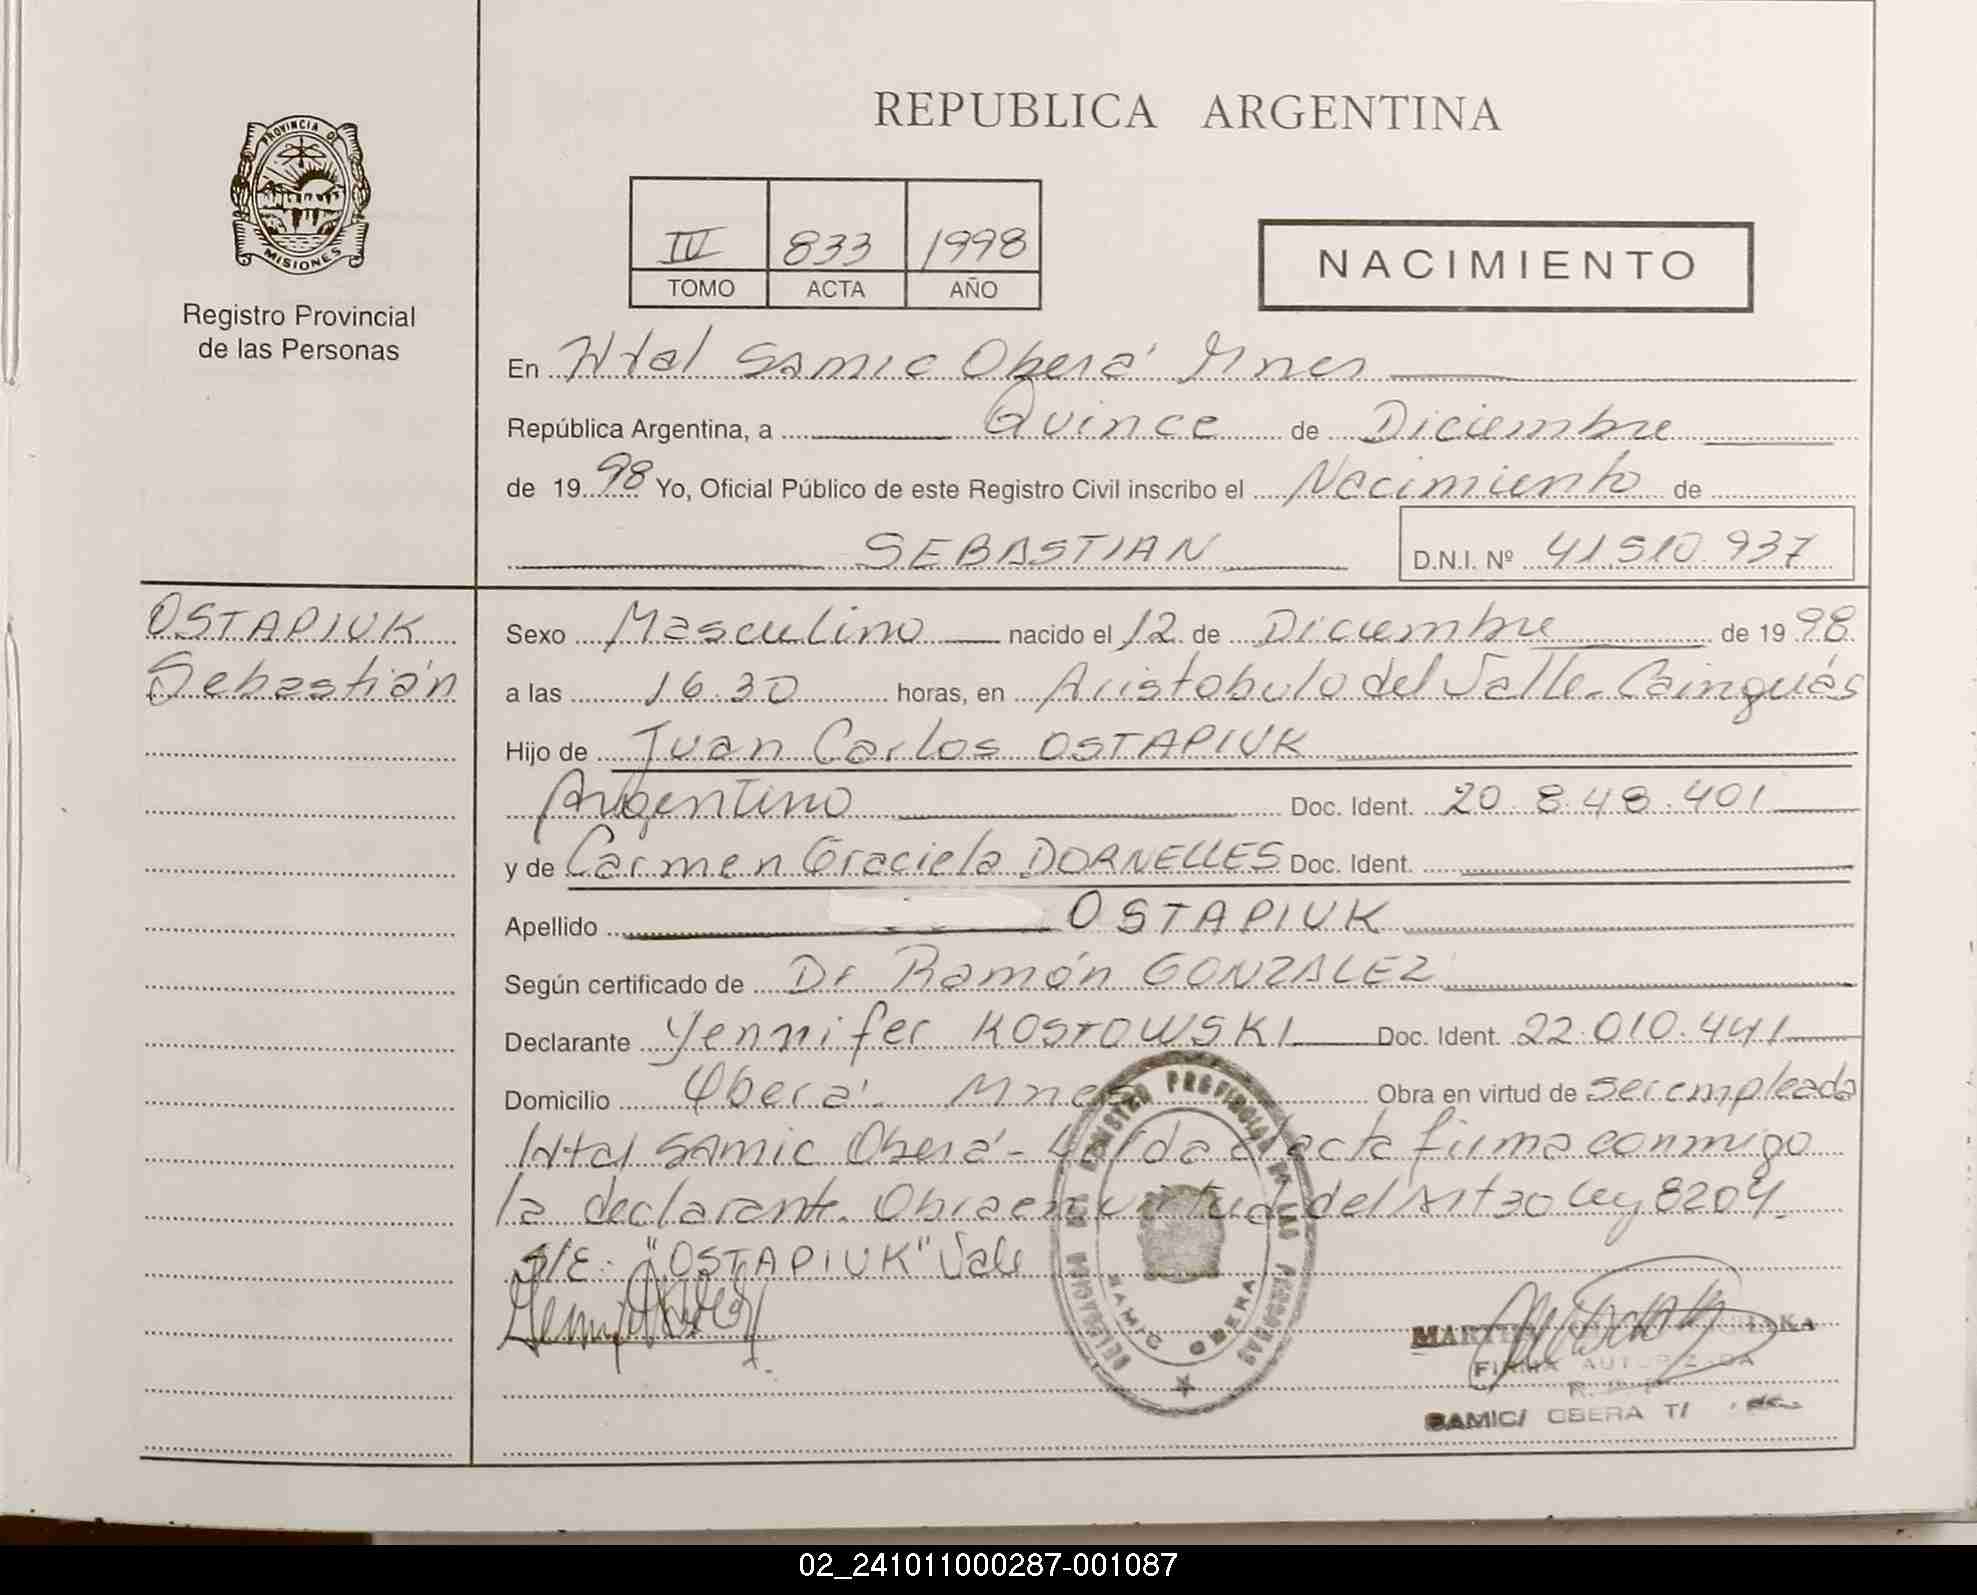 REPUBLICA ARGENTINA
PROVINCIA DE
MISIONES
Registro Provincial
de las Personas
IV 833 1998
TOMO ACTA AÑO
NACIMIENTO
En Htal SAMIC Oberá Mnes
República Argentina, a Quince de Diciembre
de 1998 Yo, Oficial Público de este Registro Civil inscribo el Nacimiento de
SEBASTIAN D.N.I. Nº 41.510.937
OSTAPIUK
Sebastián
Sexo Masculino nacido el 12 de Diciembre de 1998
a las 16.30 horas, en Aristobulo del Valle - Cainguás
Hijo de Juan Carlos OSTAPIUK
Argentino Doc. Ident. 20.848.401
y de Carmen Graciela DORNELLES Doc. Ident.
Apellido OSTAPIUK
Según certificado de Dr Ramón GONZALEZ
Declarante Yennifer KOSTOWSKI Doc. Ident. 22.010.441
Domicilio Oberá - Mnes Obra en virtud de ser empleada
Htal SAMIC Oberá - Leída el acta firma conmigo
la declarante. Obra en virtud del Art 30 Ley 8204.
S/E: "OSTAPIUK" Vale
SAMIC OBERA
FIRMA AUTORIZADA
SAMIC/ OBERA
02_241011000287-001087